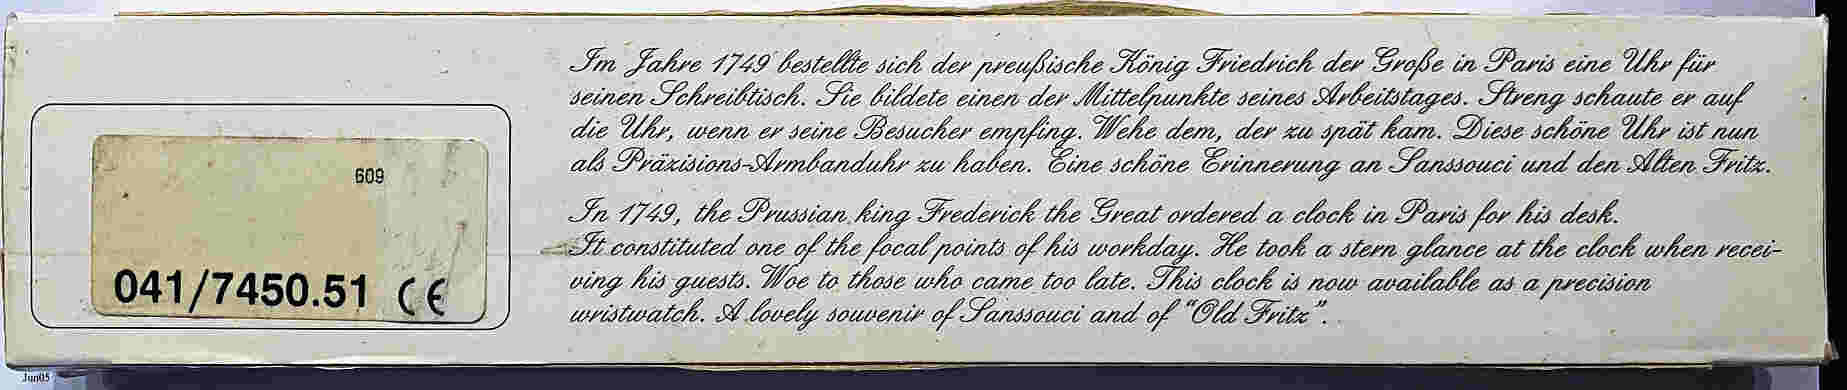 609
041/7450.51 CE
Im Jahre 1749 bestellte sich der preußische König Friedrich der Große in Paris eine Uhr für
seinen Schreibtisch. Sie bildete einen der Mittelpunkte seines Arbeitstages. Streng schaute er auf
die Uhr, wenn er seine Besucher empfing. Wehe dem, der zu spät kam. Diese schöne Uhr ist nun
als Präzisions-Armbanduhr zu haben. Eine schöne Erinnerung an Sanssouci und den Alten Fritz.
In 1749, the Prussian king Frederick the Great ordered a clock in Paris for his desk.
It constituted one of the focal points of his workday. He took a stern glance at the clock when recei-
ving his guests. Woe to those who came too late. This clock is now available as a precision
wristwatch. A lovely souvenir of Sanssouci and of "Old Fritz".
Jun05